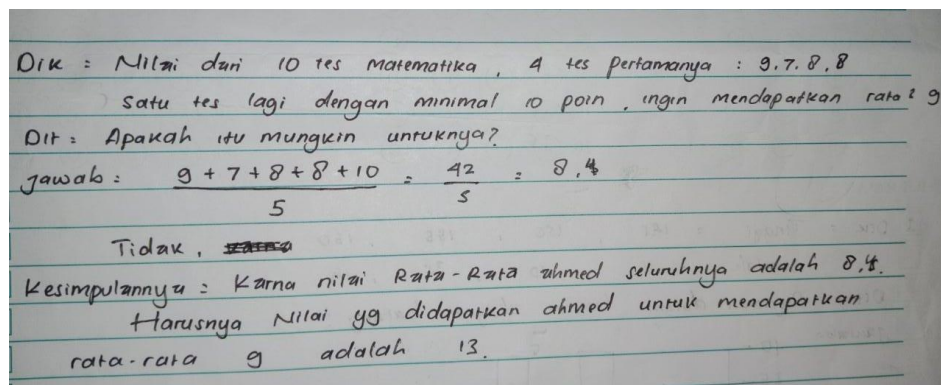 Dik : Nilai dari 10 tes matematika, 4 tes pertamanya : 9.7.8,8
satu tes lagi dengan minimal 10 poin, ingin mendapatkan rata² 9
Dit : Apakah itu mungkin untuknya?
Jawab : 9 + 7 + 8 + 8 + 10 / 5 = 42 / 5 = 8,4
Tidak,
Kesimpulannya : Karna nilai Rata-Rata ahmed seluruhnya adalah 8,4.
Harusnya Nilai yg didapatkan ahmed untuk mendapatkan
rata-rata 9 adalah 13.